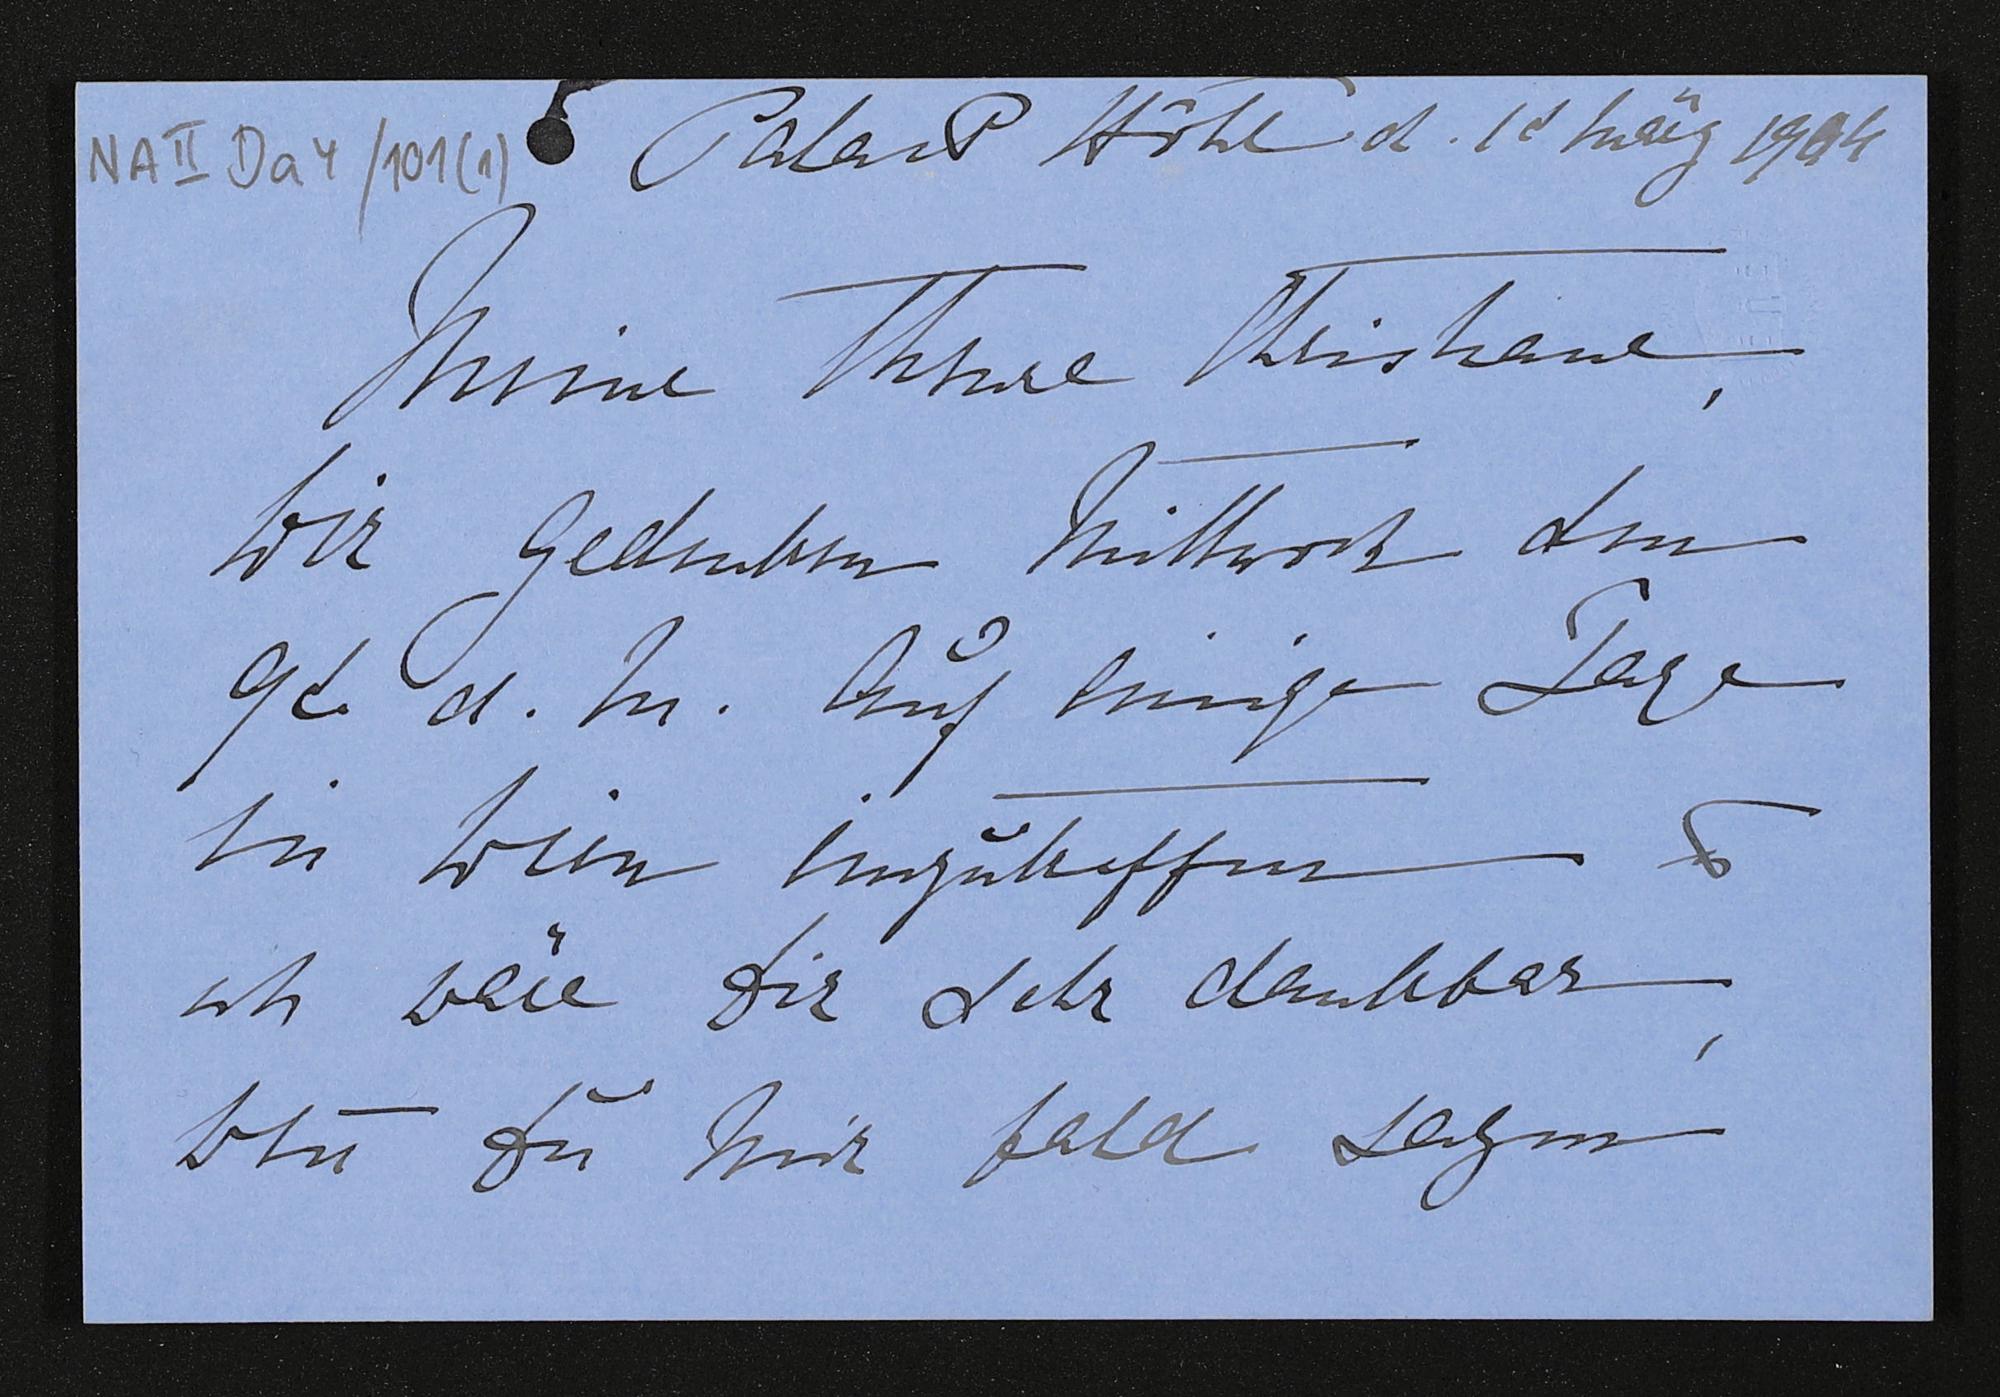 NA II Da 4/101(1)
Palast Hôtel d. 1t März 1904
Meine Theure Christiane,
Wir gedenken Mittwoch den
9t d. M. auf einige Tage
in Wien einzutreffen &
ich wäre Dir sehr dankbar,
Du mir bald sagen